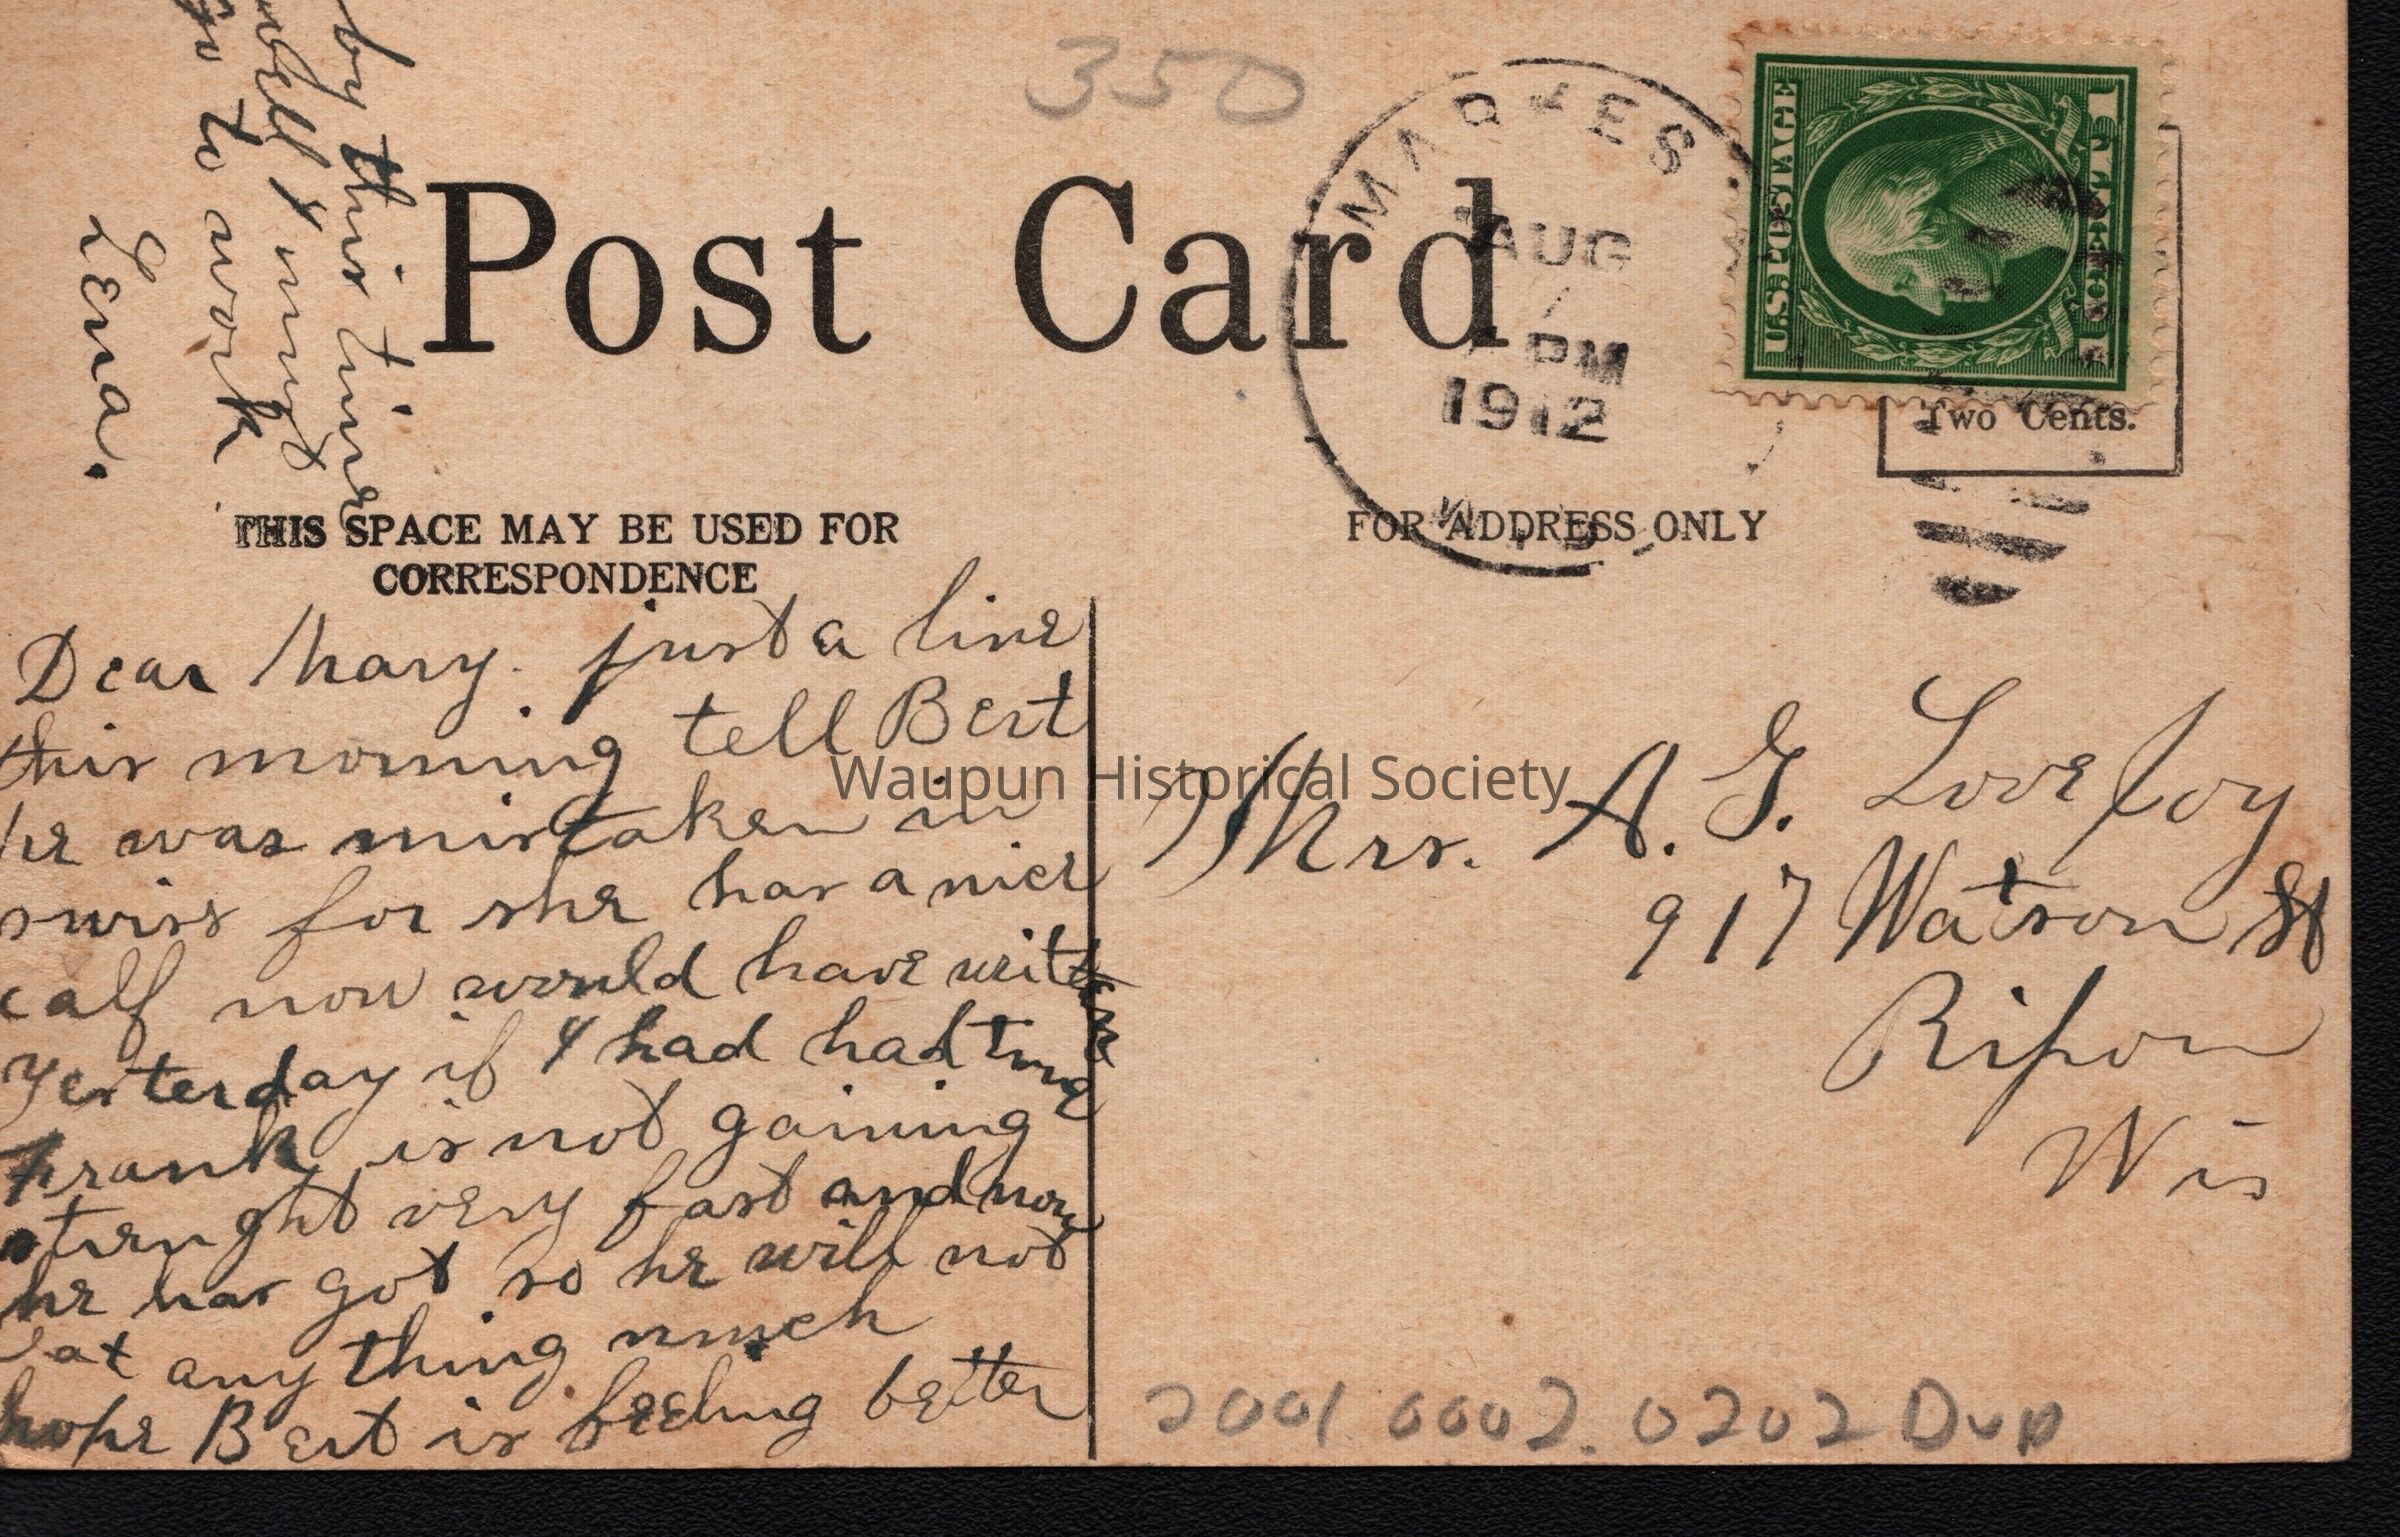 350
Post Card
MARKES
AUG
7
PM
1912
WIS.
U.S. POSTAGE
1 CENT 1
Two Cents.
THIS SPACE MAY BE USED FOR
CORRESPONDENCE
FOR ADDRESS ONLY
Dear Mary. just a line
this morning tell Bert
he was mistaken in
swiss for she has a nice
calf now would have written
Yesterday if I had had time
Frank is not gaining
sternght very fast and now
he has got so he will not
eat any thing much
hope Bert is feeling better
by this time
well I must
go to work
Lena.
Mrs. A. G. Lovejoy
917 Watson St
Ripon
Wis
Waupun Historical Society
2001.0002.0202 Dup